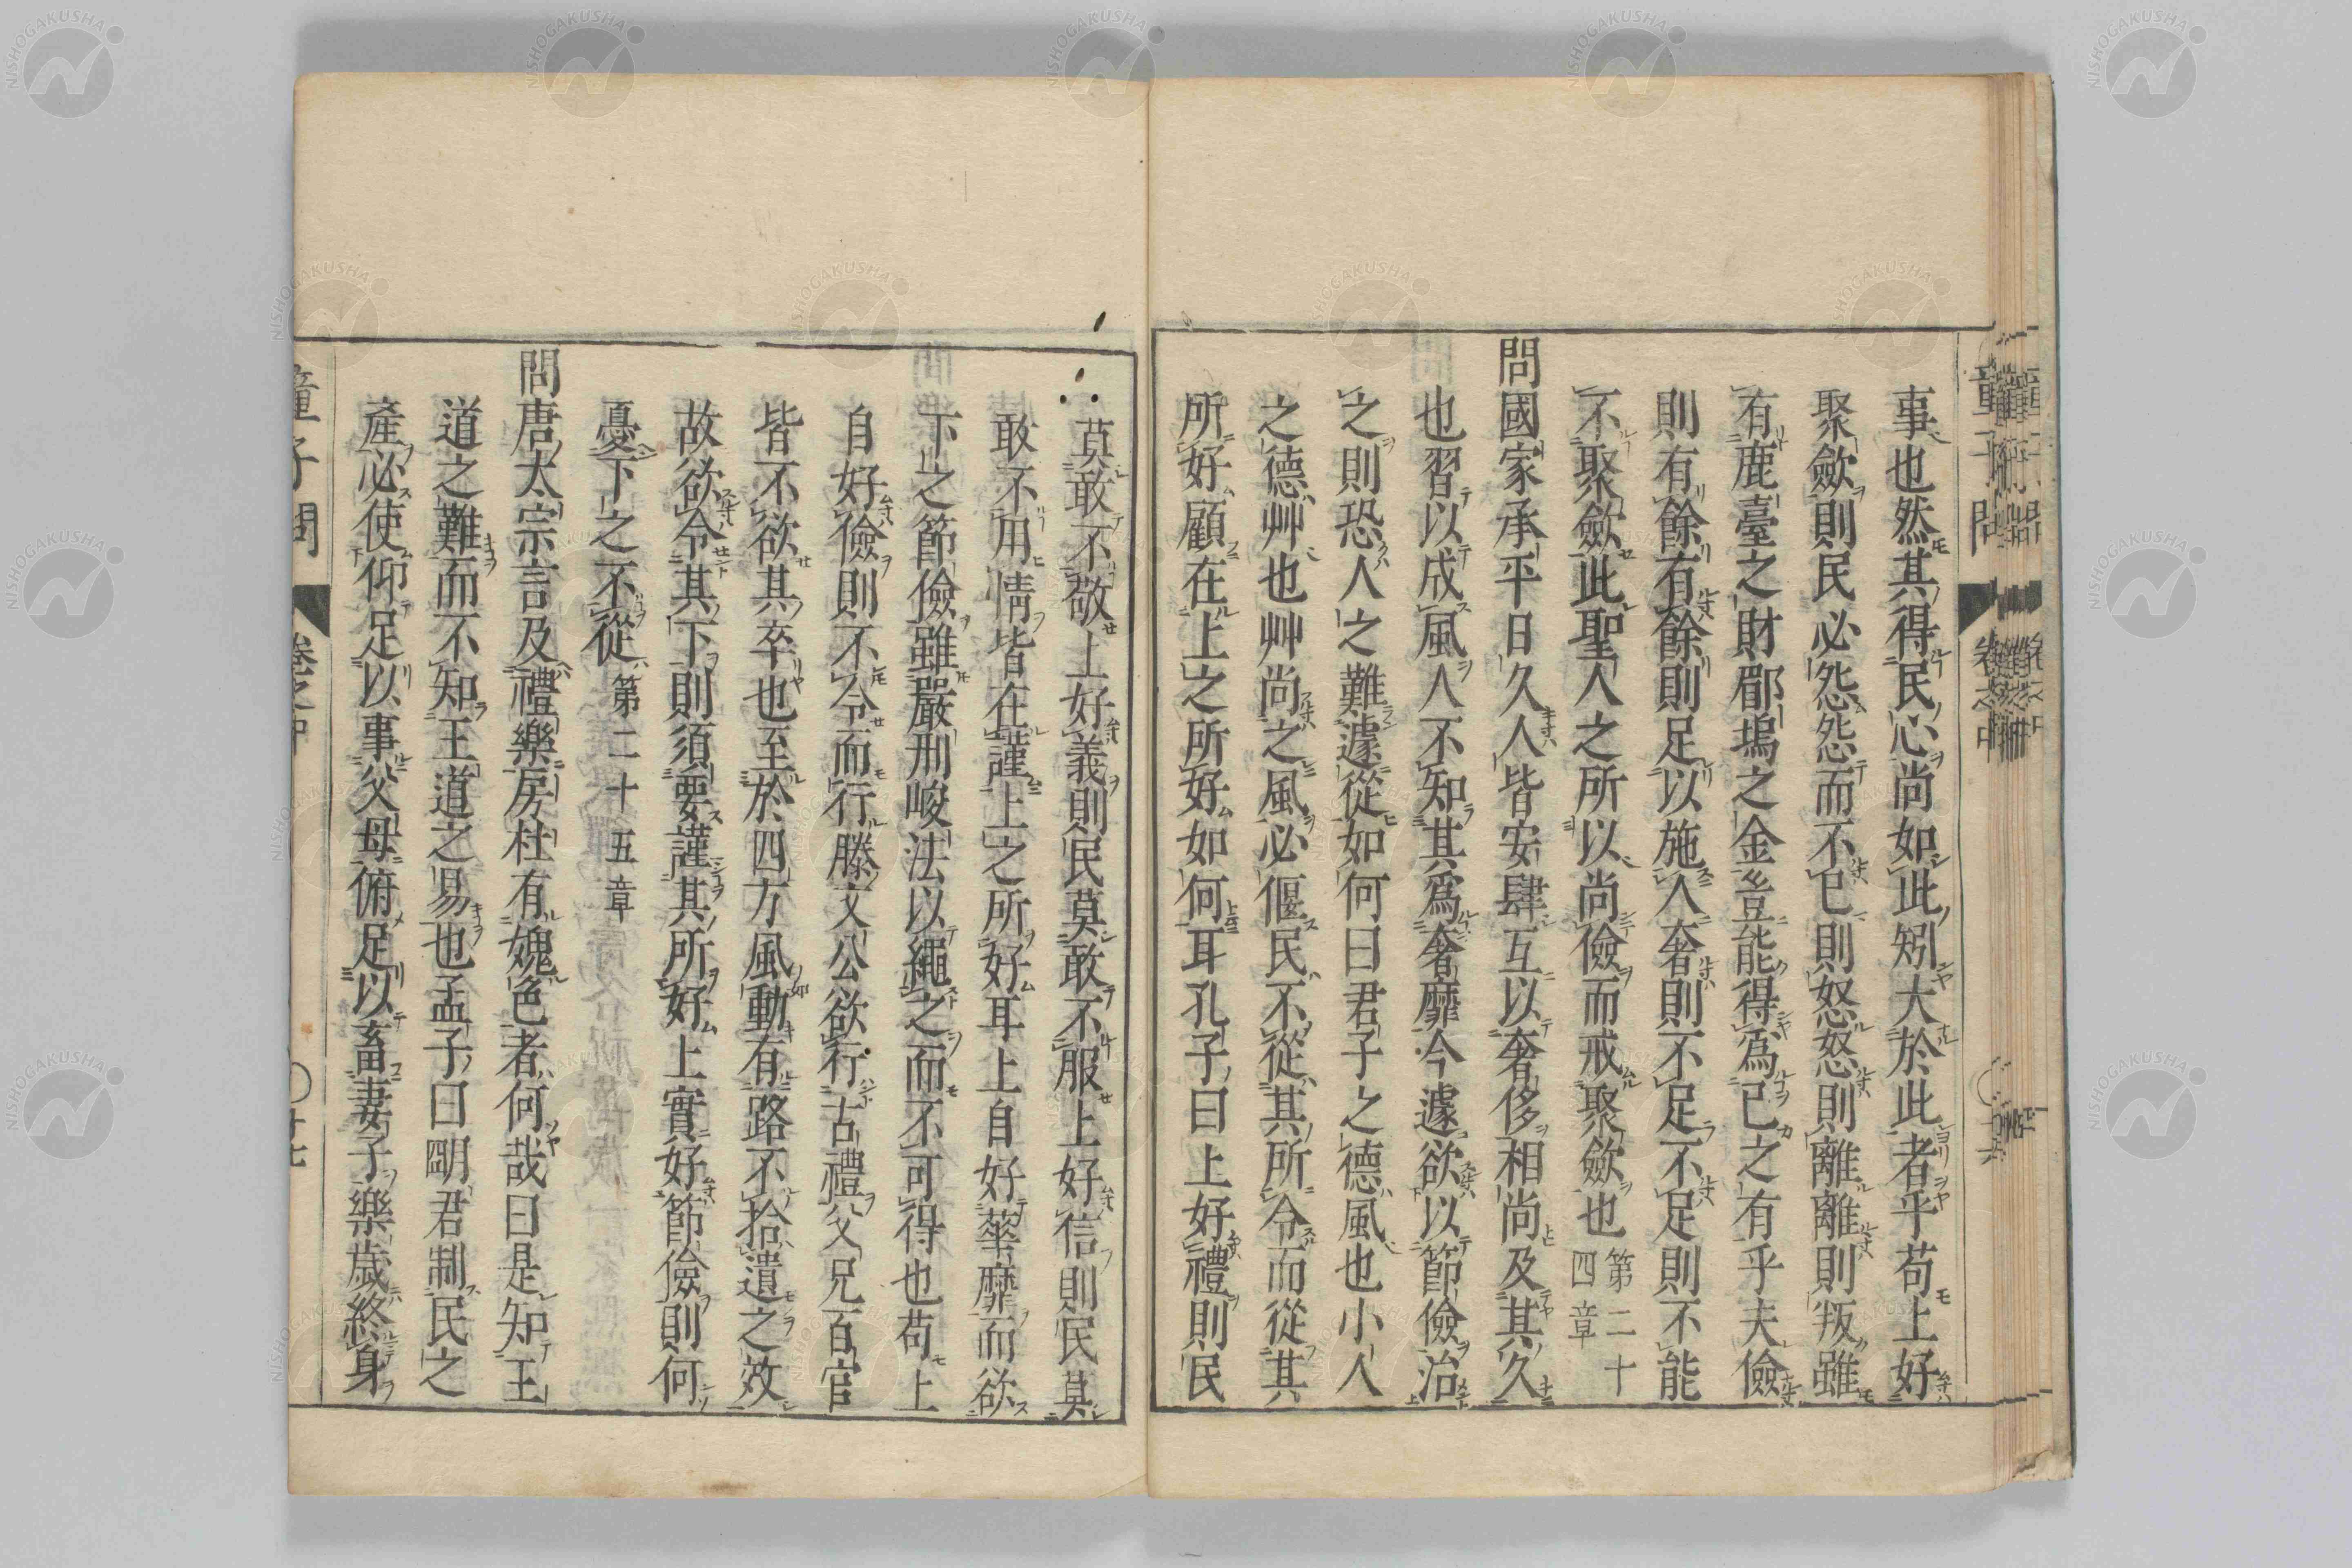 事也然其得民心尚如此矧大於此者乎苟上好
聚斂則民必怨怨而不已則怒怒則離離則叛雖
有鹿臺之財郿塢之金豈能得爲己之有乎夫儉
則有餘有餘則足以施人奢則不足不足則不能
不聚斂此聖人之所以尚儉而戒聚斂也第二十四章
問國家承平日久人皆安肆互以奢侈相尚及其久
也習以成風人不知其爲奢靡今遽欲以節儉治
之則恐人之難遽從如何曰君子之德風也小人
之德艸也艸尚之風必偃民不從其所令而從其
所好顧在上之所好如何耳孔子曰上好禮則民
莫敢不敬上好義則民莫敢不服上好信則民莫
敢不用情皆在謹上之所好耳上自好華靡而欲
下之節儉雖嚴刑峻法以繩之而不可得也苟上
自好儉則不令而行滕文公欲行古禮父兄百官
皆不欲其卒也至於四方風動有路不拾遺之效
故欲令其下則須要謹其所好上實好節儉則何
憂下之不從第二十五章
問唐太宗言及禮樂房杜有媿色者何哉曰是知王
道之難而不知王道之易也孟子曰明君制民之
產必使仰足以事父母俯足以畜妻子樂歲終身
童子問 卷之中 〇廿七